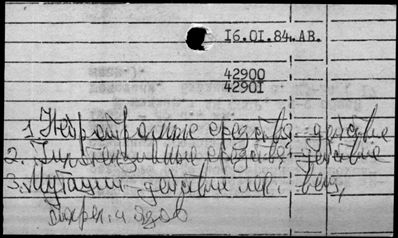 16.01.84.АВ.
42900
42901
1. Нейротропные средства - действие
2. Гипотензивные средства - действие
3. Мутации - действие лек. вещ,